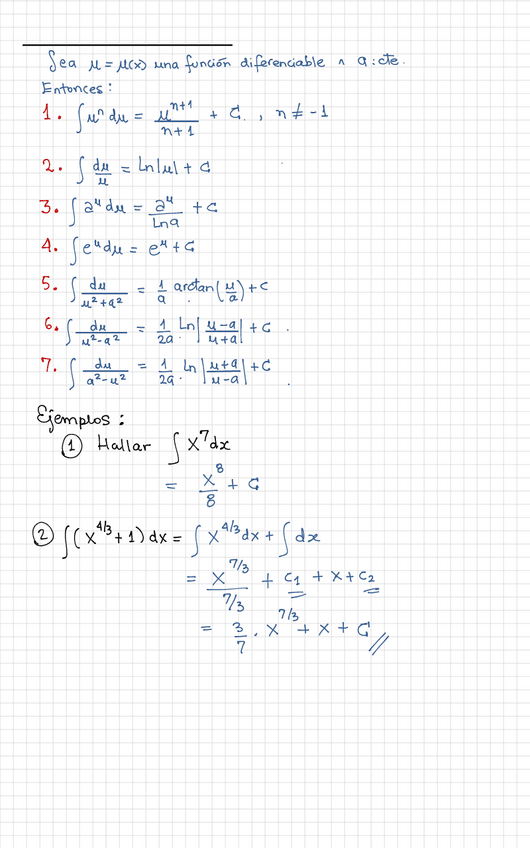 Sea μ = μ(x) una función diferenciable ∧ a: cte.
Entonces:
1. ∫ uⁿ du = uⁿ⁺¹/(n+1) + C. , n ≠ -1
2. ∫ du/u = Ln|u| + C
3. ∫ aᵘ du = aᵘ/Lna + C
4. ∫ eᵘ du = eᵘ + C
5. ∫ du/(u²+a²) = 1/a arctan(u/a) + C
6. ∫ du/(u²-a²) = 1/2a . Ln|(u-a)/(u+a)| + C .
7. ∫ du/(a²-u²) = 1/2a . Ln|(u+a)/(u-a)| + C .
Ejemplos:
① Hallar ∫ x⁷ dx
= x⁸/8 + C
② ∫ (x^(4/3) + 1) dx = ∫ x^(4/3) dx + ∫ dx
= x^(7/3)/(7/3) + C₁ + x + C₂
= 3/7 . x^(7/3) + x + C //